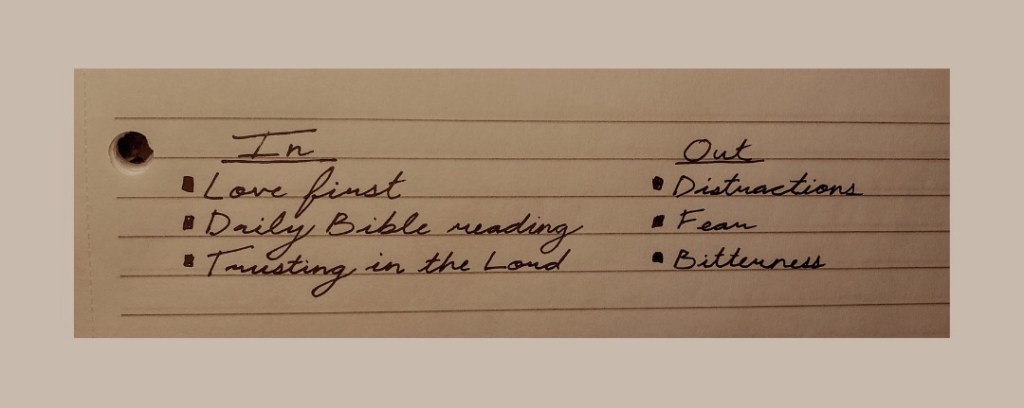 In
▪ Love first
▪ Daily Bible reading
▪ Trusting in the Lord
Out
▪ Distractions
▪ Fear
▪ Bitterness